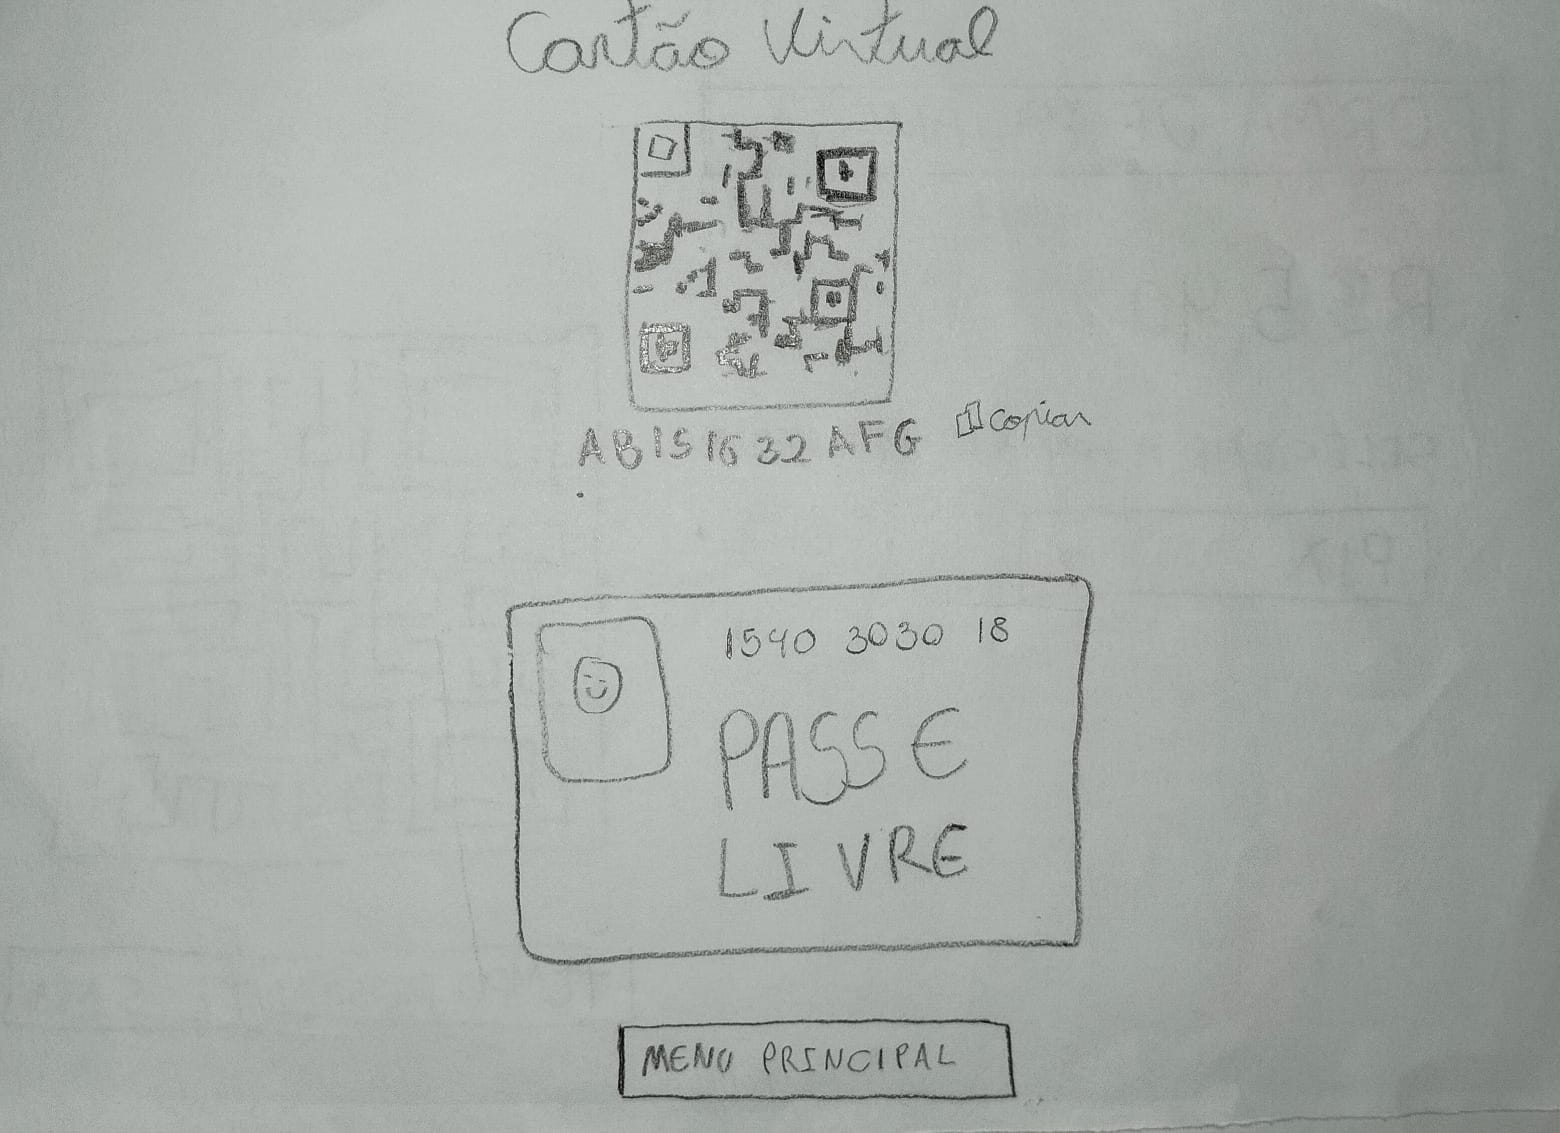 Cartão Virtual
AB1S1632AFG Copiar
1540 3030 18
PASSE
LIVRE
MENU PRINCIPAL